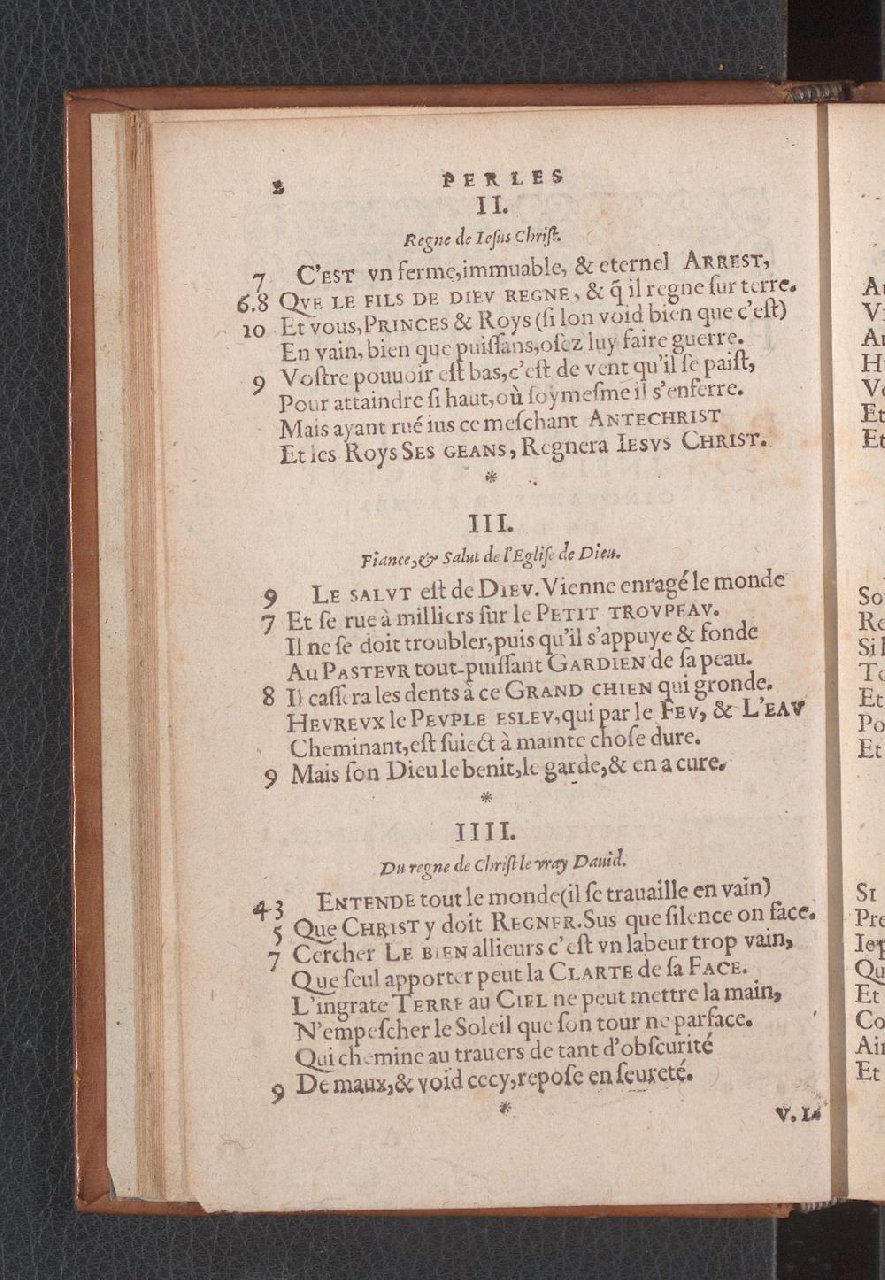 2 PERLES
II.
Regne de Iesus Christ.
7 C'EST vn ferme,immuable, & eternel ARREST,
6.8 QVE LE FILS DE DIEV REGNE, & q̃ il regne ſur terre.
10 Et vous,PRINCES & Roys (ſi lon void bien que c'eſt)
En vain, bien que puiſſans,oſez luy faire guerre.
9 Voſtre pouuoir eſt bas,c'eſt de vent qu'il ſe paiſt,
Pour attaindre ſi haut,où ſoymeſme il s'enferre.
Mais ayant rué ius ce meſchant ANTECHRIST
Et les Roys SES GEANS, Regnera IESVS CHRIST.
*
III.
Fiance,& Salut de l'Egliſe de Dieu.
9 LE SALVT eſt de DIEV. Vienne enragé le monde
7 Et ſe rue à milliers ſur le PETIT TROVPEAV.
Il ne ſe doit troubler,puis qu'il s'appuye & fonde
Au PASTEVR tout-puiſſant GARDIEN de ſa peau.
8 Il caſſera les dents à ce GRAND CHIEN qui gronde.
HEVREVX le PEVPLE ESLEV,qui par le FEV, & L'EAV
Cheminant,eſt ſuiect à mainte choſe dure.
9 Mais ſon Dieu le benit,le garde,& en a cure.
*
IIII.
Du regne de Chriſt le vray Dauid.
43 ENTENDE tout le monde(il ſe trauaille en vain)
5 Que CHRIST y doit REGNER. Sus que ſilence on face.
7 Cercher LE BIEN allieurs c'eſt vn labeur trop vain,
Que ſeul apporter peut la CLARTE de ſa FACE.
L'ingrate TERRE au CIEL ne peut mettre la main,
N'empeſcher le Soleil que ſon tour ne parface.
Qui chemine au trauers de tant d'obſcurité
9 De maux,& void cecy,repoſe en ſeureté.
*
V. L.
Vi
Et
Et
So
Re
Si
Et
Po
Et
SI
Pre
Qu
Et
Co
Ain
Et